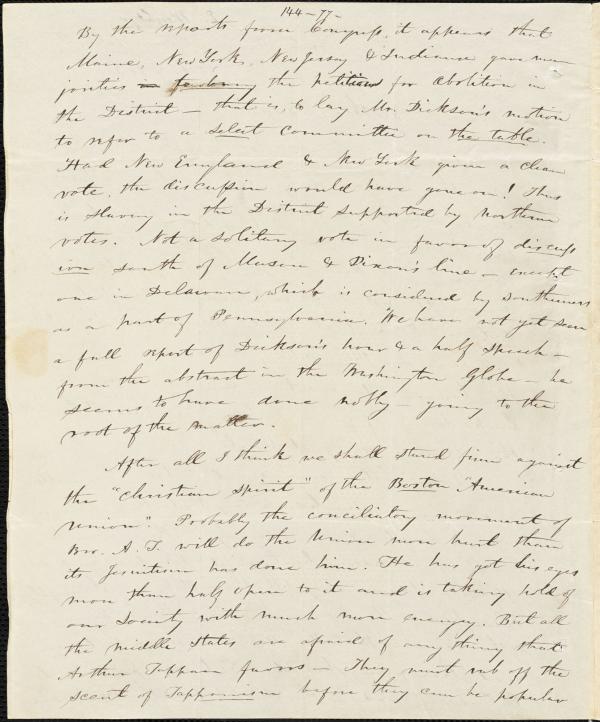 144-77-
By the reports from Congress, it appears that
Maine, New York, New Jersey & Indiana gave ma-
jorities in the petitions for Abolition in
the District — that is, to lay Mr. Dickson's motion
to refer to a select committee on the table.
Had New England & New York given a clean
vote, the discussion would have gone on! Thus
is slavery in the District supported by northern
votes. Not a solitary vote in favor of discuss
ion south of Mason & Dixon's line — except
one in Delaware, which is considered by southerners
as a part of Pennsylvania. We have not yet seen
a full report of Dickson's hour & a half speech —
from the abstract in the Washington Globe — he
seems to have done nobly — going to the
root of the matter.
After all I think we shall stand firm against
the "Christian spirit" of the Boston "American
Union". Probably the conciliatory movement of
Bro. A. T. will do the Union more hurt than
its Jesuitism has done him. He has got his eyes
more than half open to it and is taking hold of
our Society with much more energy. But all
the middle states are afraid of any thing that
Arthur Tappan favors — They must rub off the
scent of Tappanism before they can be popular